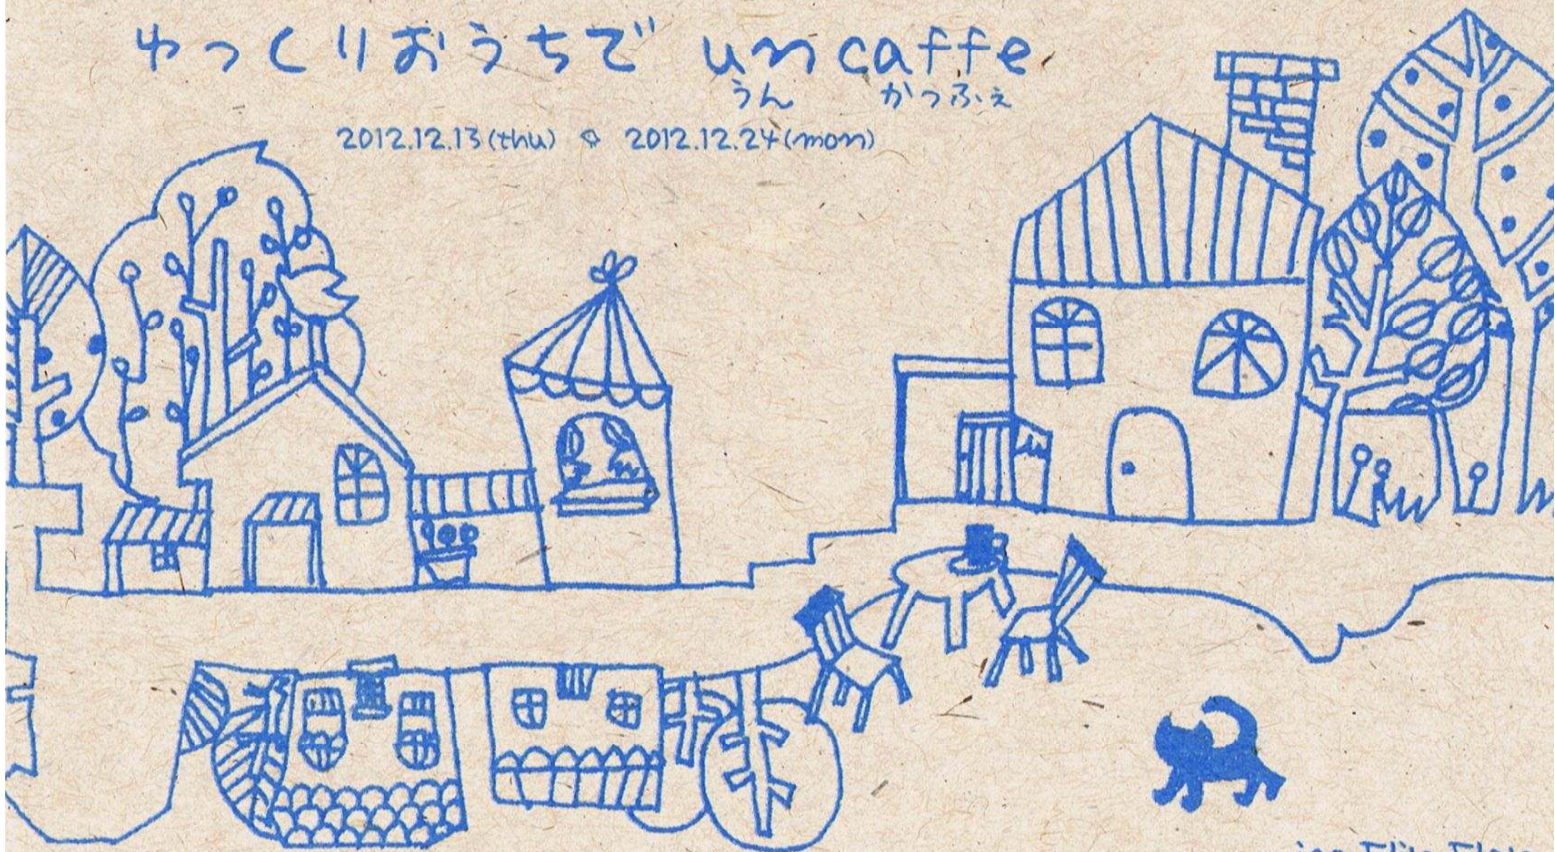 ゆっくりおうちで un caffe
うん かっふぇ
2012.12.13(thu) ◇ 2012.12.24(mon)